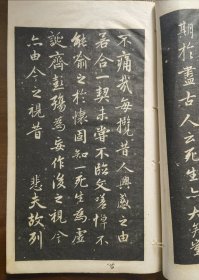 期於盡古人云死生亦大矣豈
不痛哉每攬昔人興感之由
若合一契未嘗不臨文嗟悼不
能喻之於懷固知一死生為虛
誕齊彭殤為妄作後之視今
亦由今之視昔 悲夫故列